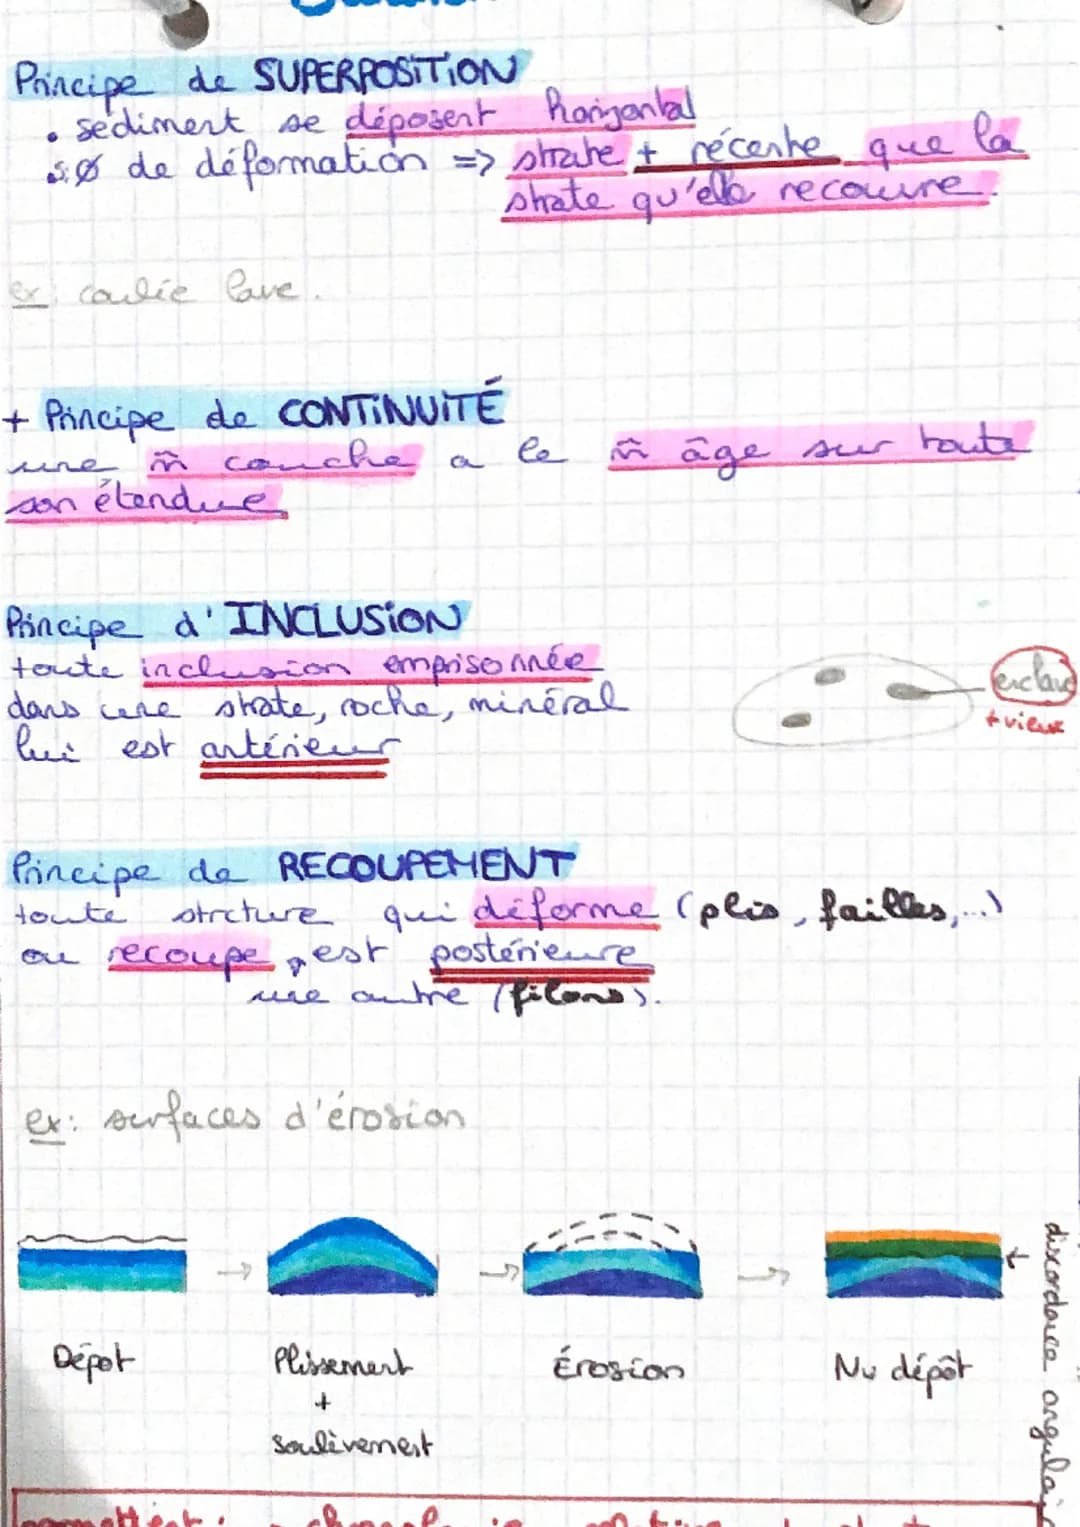 Principe de SUPERPOSITION
• sédiment se déposent horizontal
si Ø de déformation => strate + récente que la
strate qu'elle recouvre.
ex: coulée lave.
+ Principe de CONTINUITÉ
une m̂ couche a le m̂ âge sur toute
son étendue
Principe d'INCLUSION
toute inclusion emprisonnée
dans une strate, roche, minéral
lui est antérieur
enclave
+ vieux
Principe de RECOUPEMENT
toute strcture qui déforme (plis, failles,...)
ou recoupe est postérieure
une autre (filons).
ex: surfaces d'érosion
Dépot
Plissement
+
Soulèvement
Érosion
Nv dépôt
discordance angulai